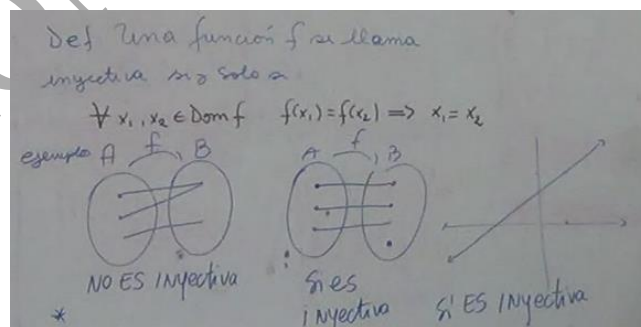 Def Una función f se llama
inyectiva si y solo si
∀ x₁, x₂ ∈ Dom f f(x₁) = f(x₂) => x₁ = x₂
ejemplo A f B A f B
NO ES INyectiva
Si es
iNyectiva
Si ES INyectiva
*